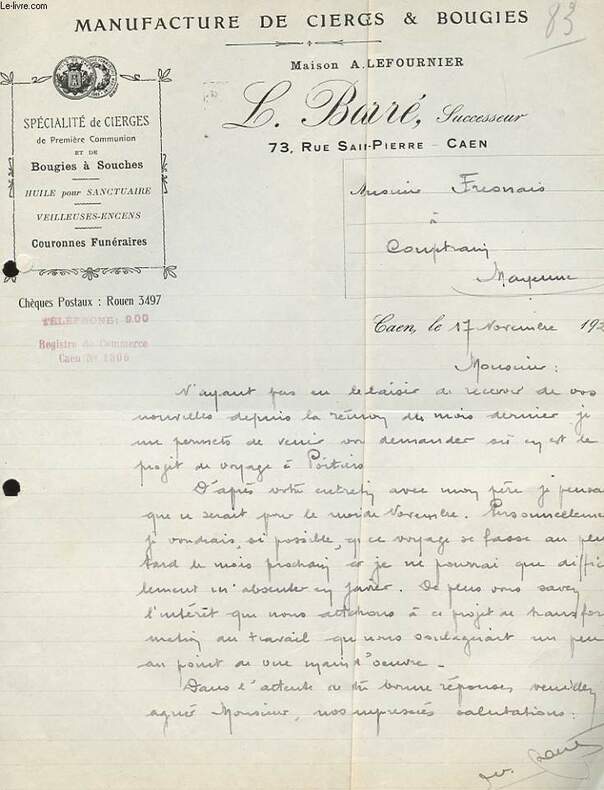 Le-livre.com
83
MANUFACTURE DE CIERGS & BOUGIES
Maison A. LEFOURNIER
L. Barré, Successeur
73, RUE SAIT-PIERRE - CAEN
SPÉCIALITÉ de CIERGES
de Première Communion
ET DE
Bougies à Souches
HUILE pour SANCTUAIRE
VEILLEUSES-ENCENS
Couronnes Funéraires
Chèques Postaux : Rouen 3497
TÉLÉPHONE: 9.00
Registre du Commerce
Caen No 1806
Monsieur Fresnais
à
Couptrain
Mayenne
Caen, le 17 Novembre 192
Monsieur :
N'ayant pas eu le plaisir de recevoir de vos
nouvelles depuis la réunion du mois dernier je
me permets de venir vous demander où en est le
projet de voyage à Poitiers
D'après votre entretien avec mon père je pensai
que ce serait pour le mois de Novembre. Personnelleme
je voudrais, si possible, que ce voyage se fasse au plus
tard le mois prochain car je ne pourrai que diffici
lement m'absenter en janvier. De plus vous savez
l'intérêt que nous attachons à ce projet de transfor
mation au travail qui nous soulagerait un peu
au point de vue main d'oeuvre _
Dans l'attente de votre bonne réponse, veuillez
agréer Monsieur, nos empressées salutations :
Barré